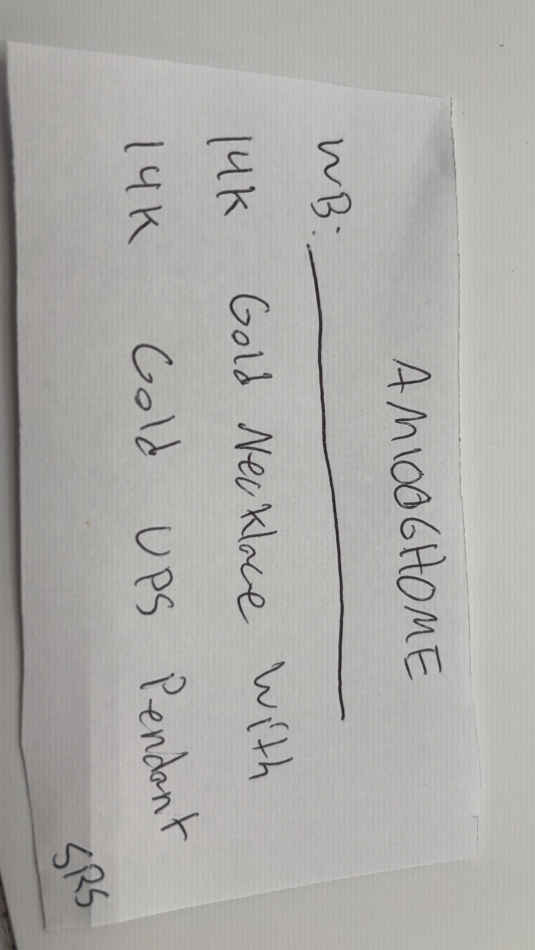 AM1006HOME
WB: ____________
14K Gold Necklace with
14K Gold UPS Pendant
SRS